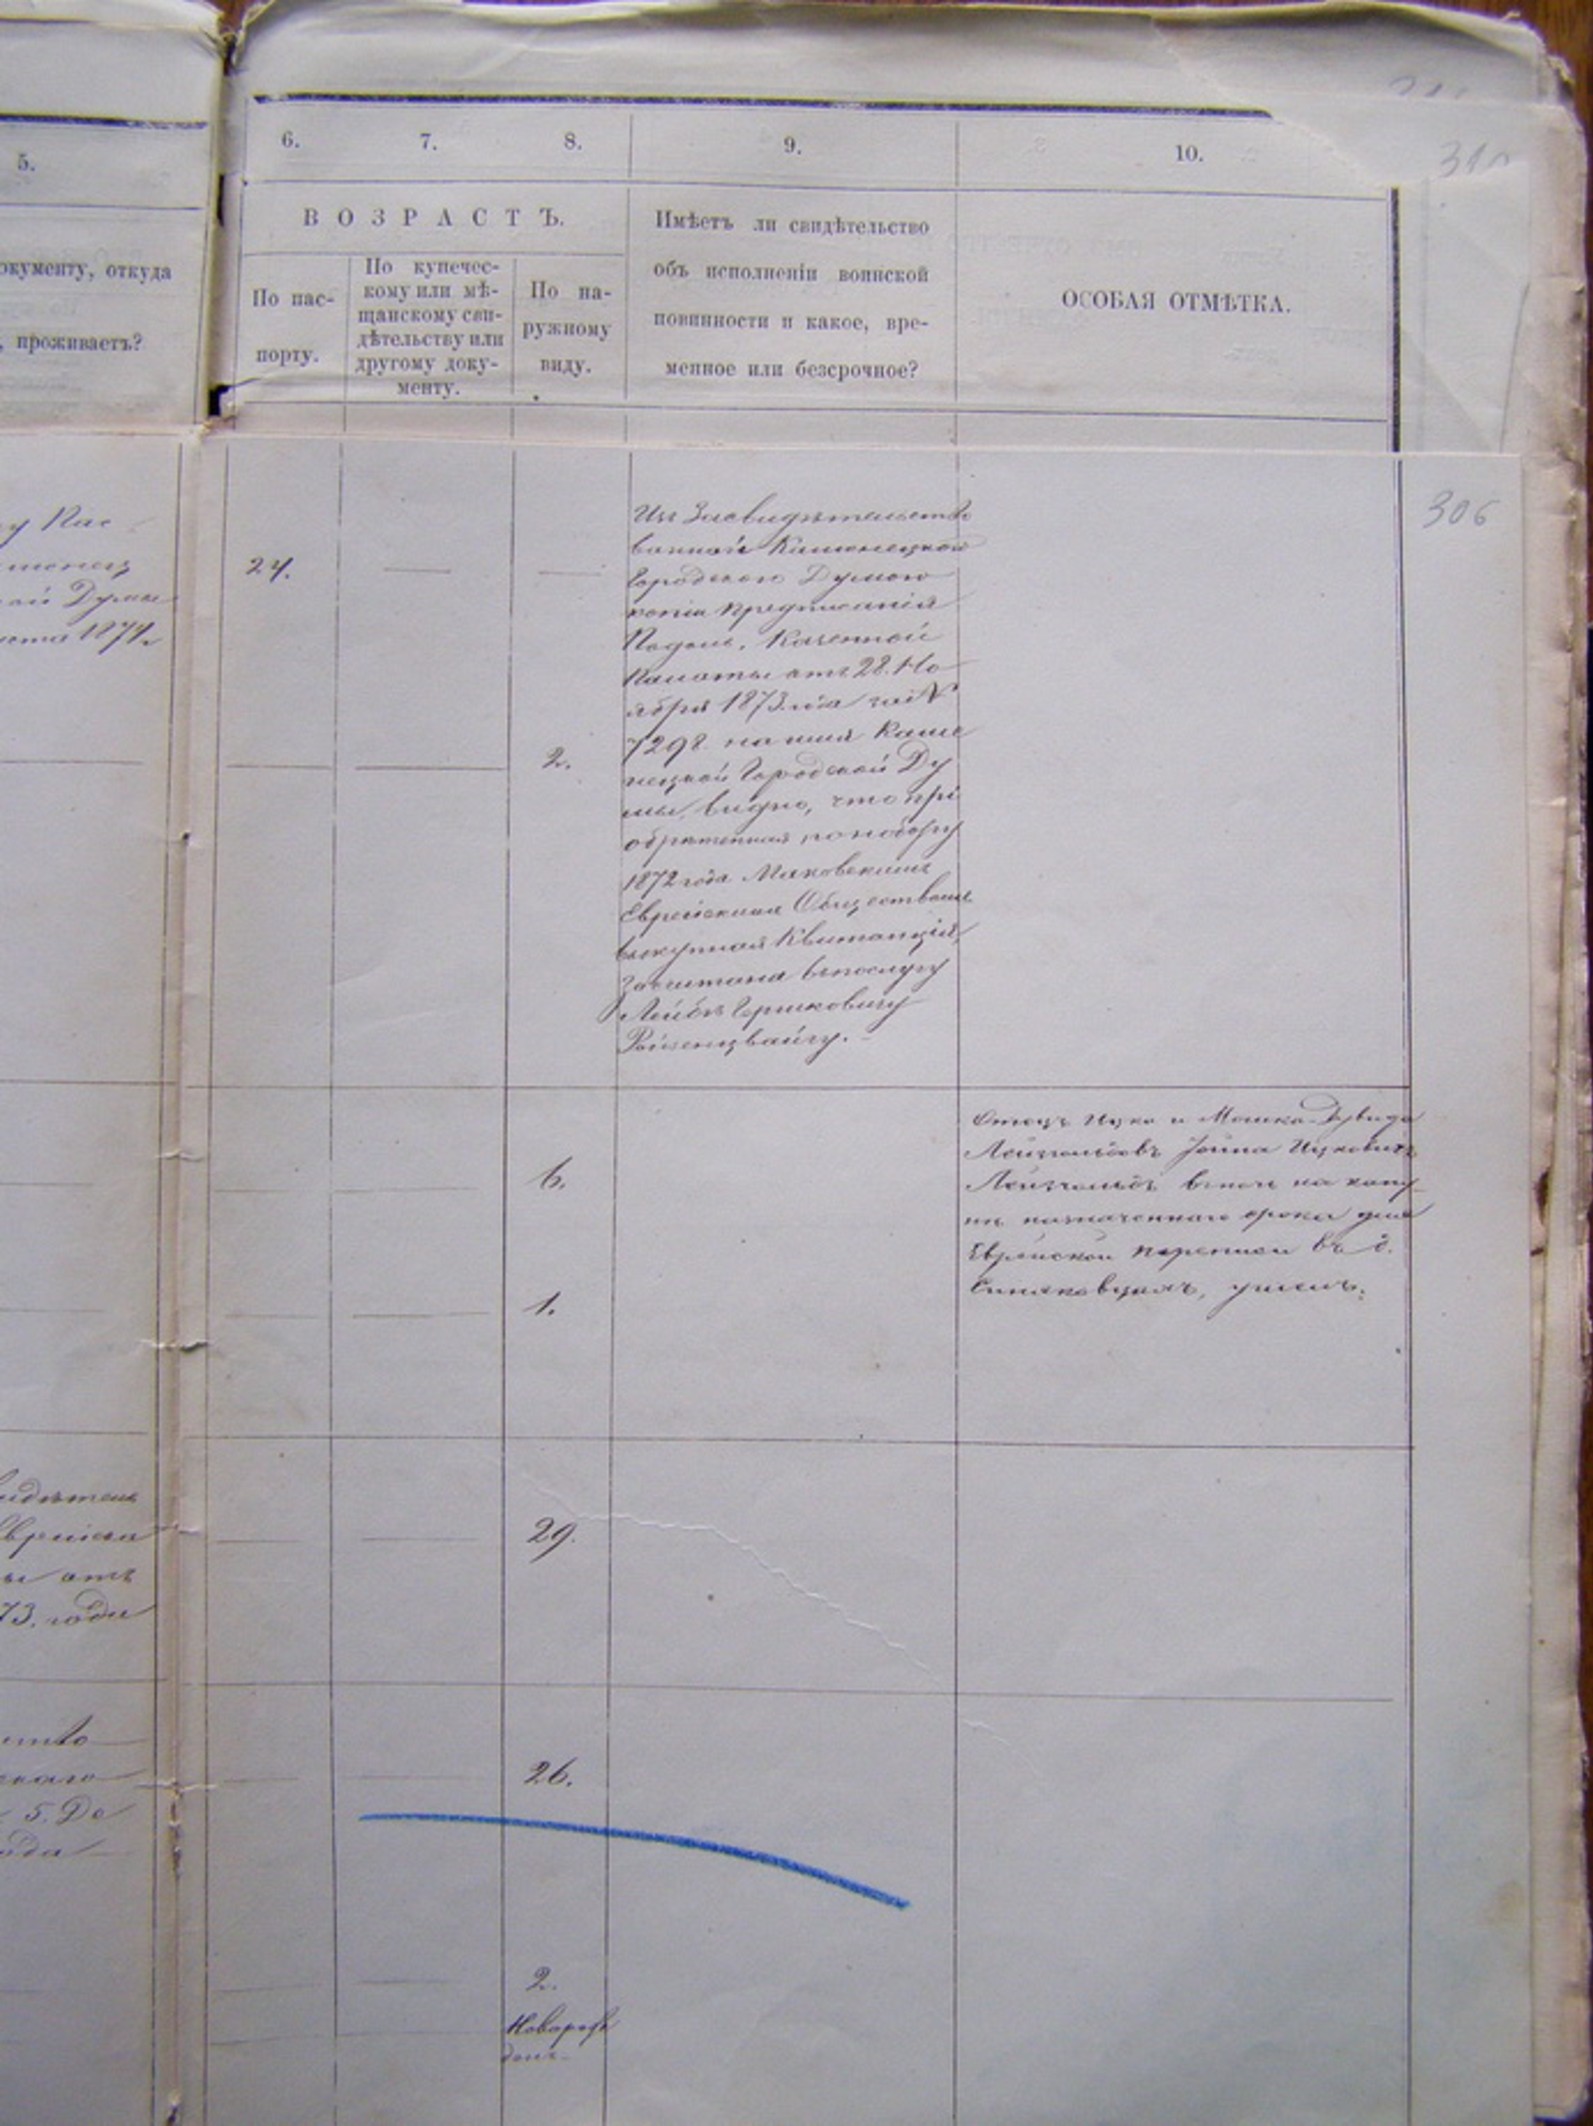 5.
6.
7.
8.
9.
10.
310
окументу, откуда
, проживаетъ?
ВОЗРАСТЪ.
По пас-
порту.
По купечес-
кому или мѣ-
щанскому сви-
дѣтельству или
другому доку-
менту.
По на-
ружному
виду.
Имѣетъ ли свидѣтельство
объ исполненіи воинской
повинности и какое, вре-
менное или безсрочное?
ОСОБАЯ ОТМѢТКА.
306
у Пас
менец
ой Думы
1874
24.
2.
Изъ Засвидѣтельство
ванной Каменецкою
Городскою Думою
копіи предписанія
Подол. Казенной
Палаты отъ 28. Но
ября 1873 года за №
7298 на имя Каме
нецкой Городской Ду
мы, видно, что прі
обрѣтенная по набору
1872 года Маковскимъ
Еврейскимъ Обществомъ
выкупная Квитанція,
Засчитана въ послугу
Лейбѣ Гершковичу
Ройзенцвайгу.
6.
1.
Отецъ Ицка и Мошка-Дувида
Іойна Ицковичъ
въ ночь на кану
нѣ назначеннаго срока для
Еврейской переписи въ с.
умеръ.
идѣтель
Еврейск
ы отъ
73. года
29.
скаго
5. Де
ода
26.
2.
Новорож
денъ